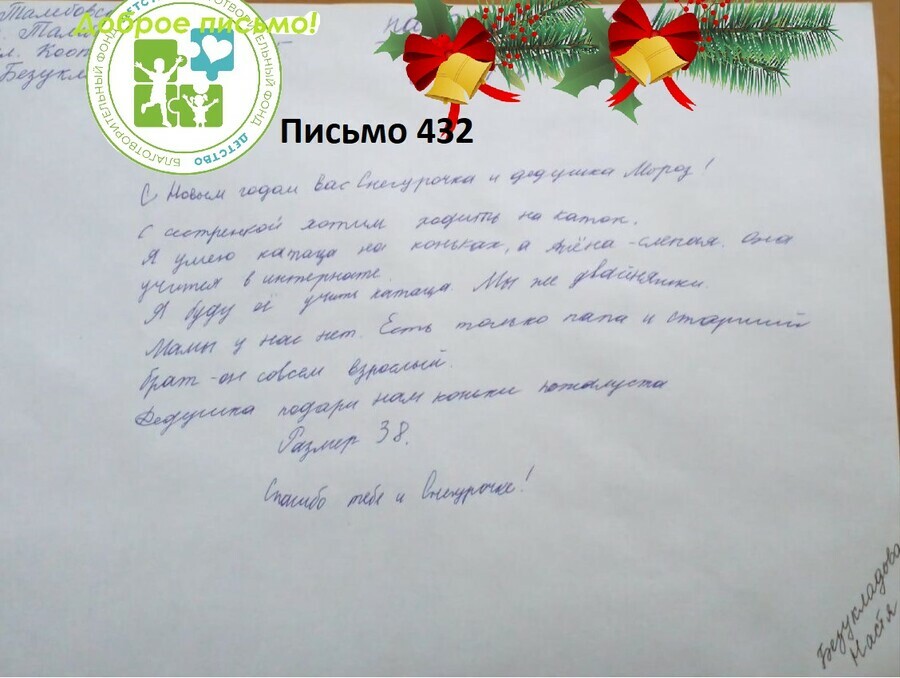 Тамбовс
Доброе письмо!
г. Там
ул. Кост
Безукл
БЛАГОТВОРИТЕЛЬНЫЙ ФОНД ДЕТСТВО
Письмо 432
С Новым годам вас Снегурочка и дедушка Мороз!
С сестрёнкой хотим ходить на каток.
Я умею катаца на коньках, а Лёна-слепая. Она
учится в интернате.
Я буду её учить катаца. Мы же двайняшки.
Мамы у нас нет. Есть только папа и старший
брат-он совсем взрослый.
Дедушка подари нам коньки пожалуста
Размер 38.
Спасибо тебе и Снегурочке!
Безукладова
Настя